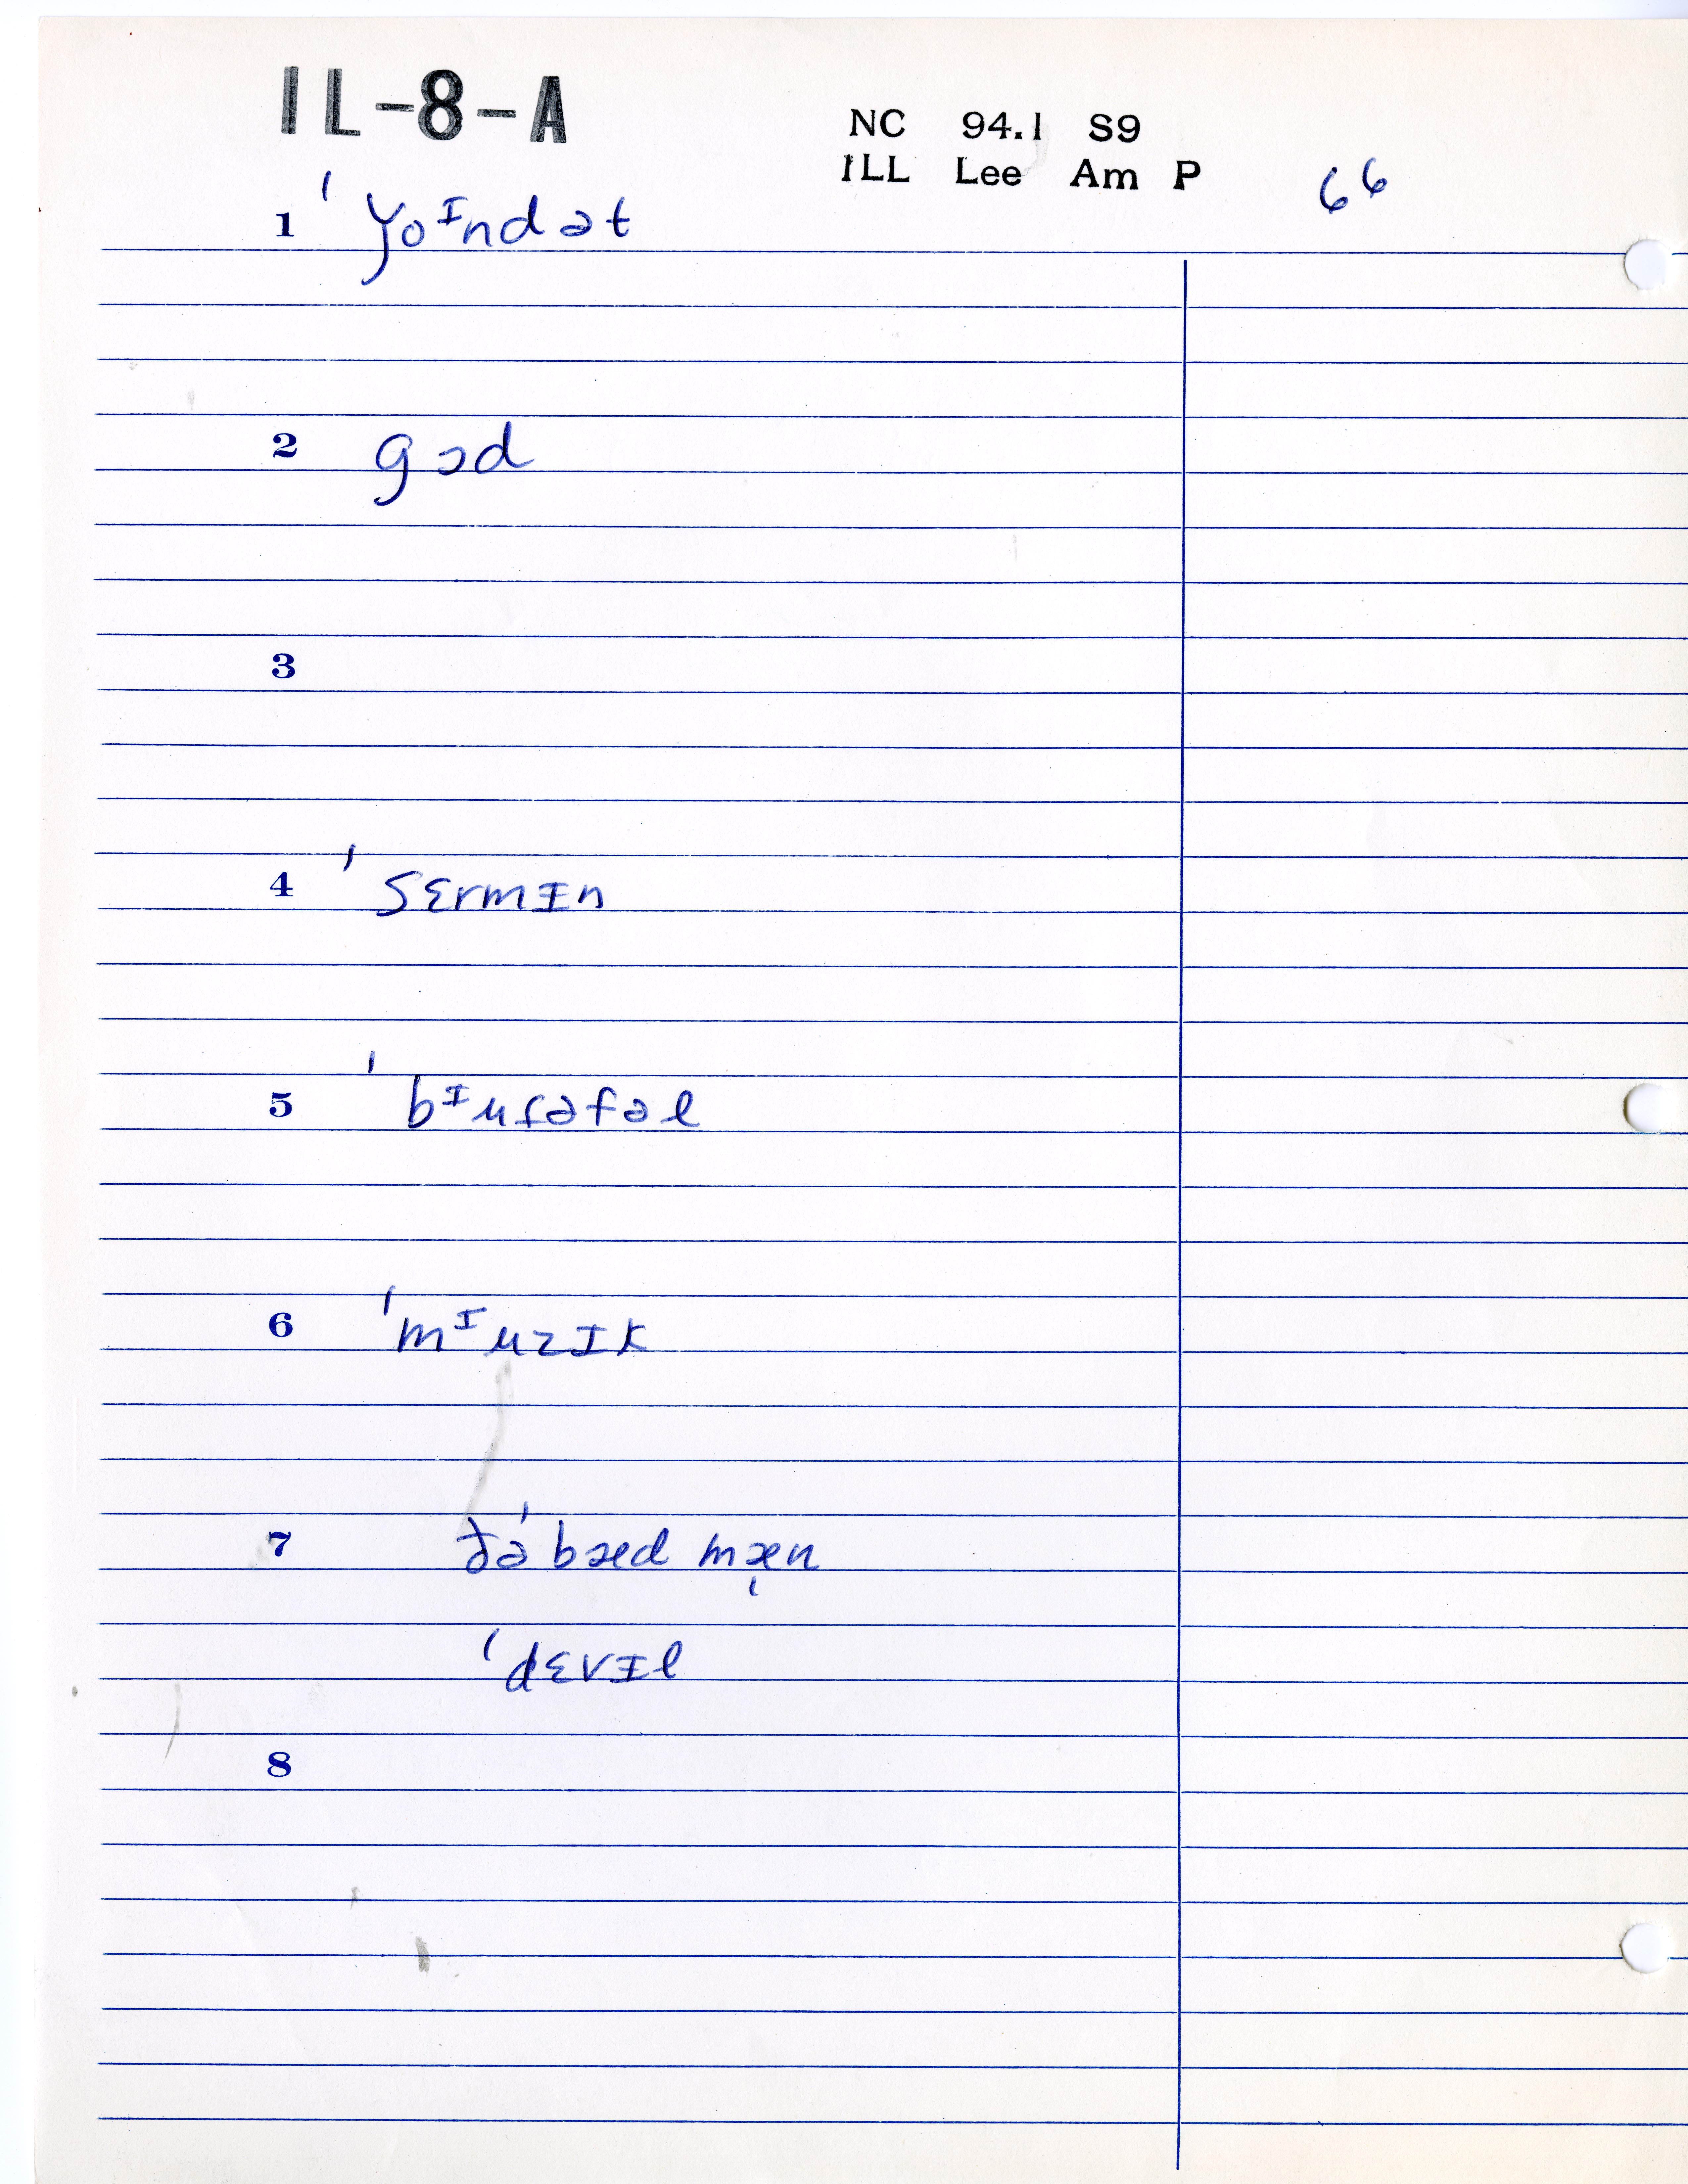 IL-8-A
NC 94.1 S9
ILL Lee Am P 66
1 ˈȷoᶦndət
2 gɔd
3
4 ˈsɛrmɪn
5 ˈbᶦuɾəfəl
6 ˈmᶦuzɪk
7 ðəˈbæd mæn
ˈdɛvɪl
8